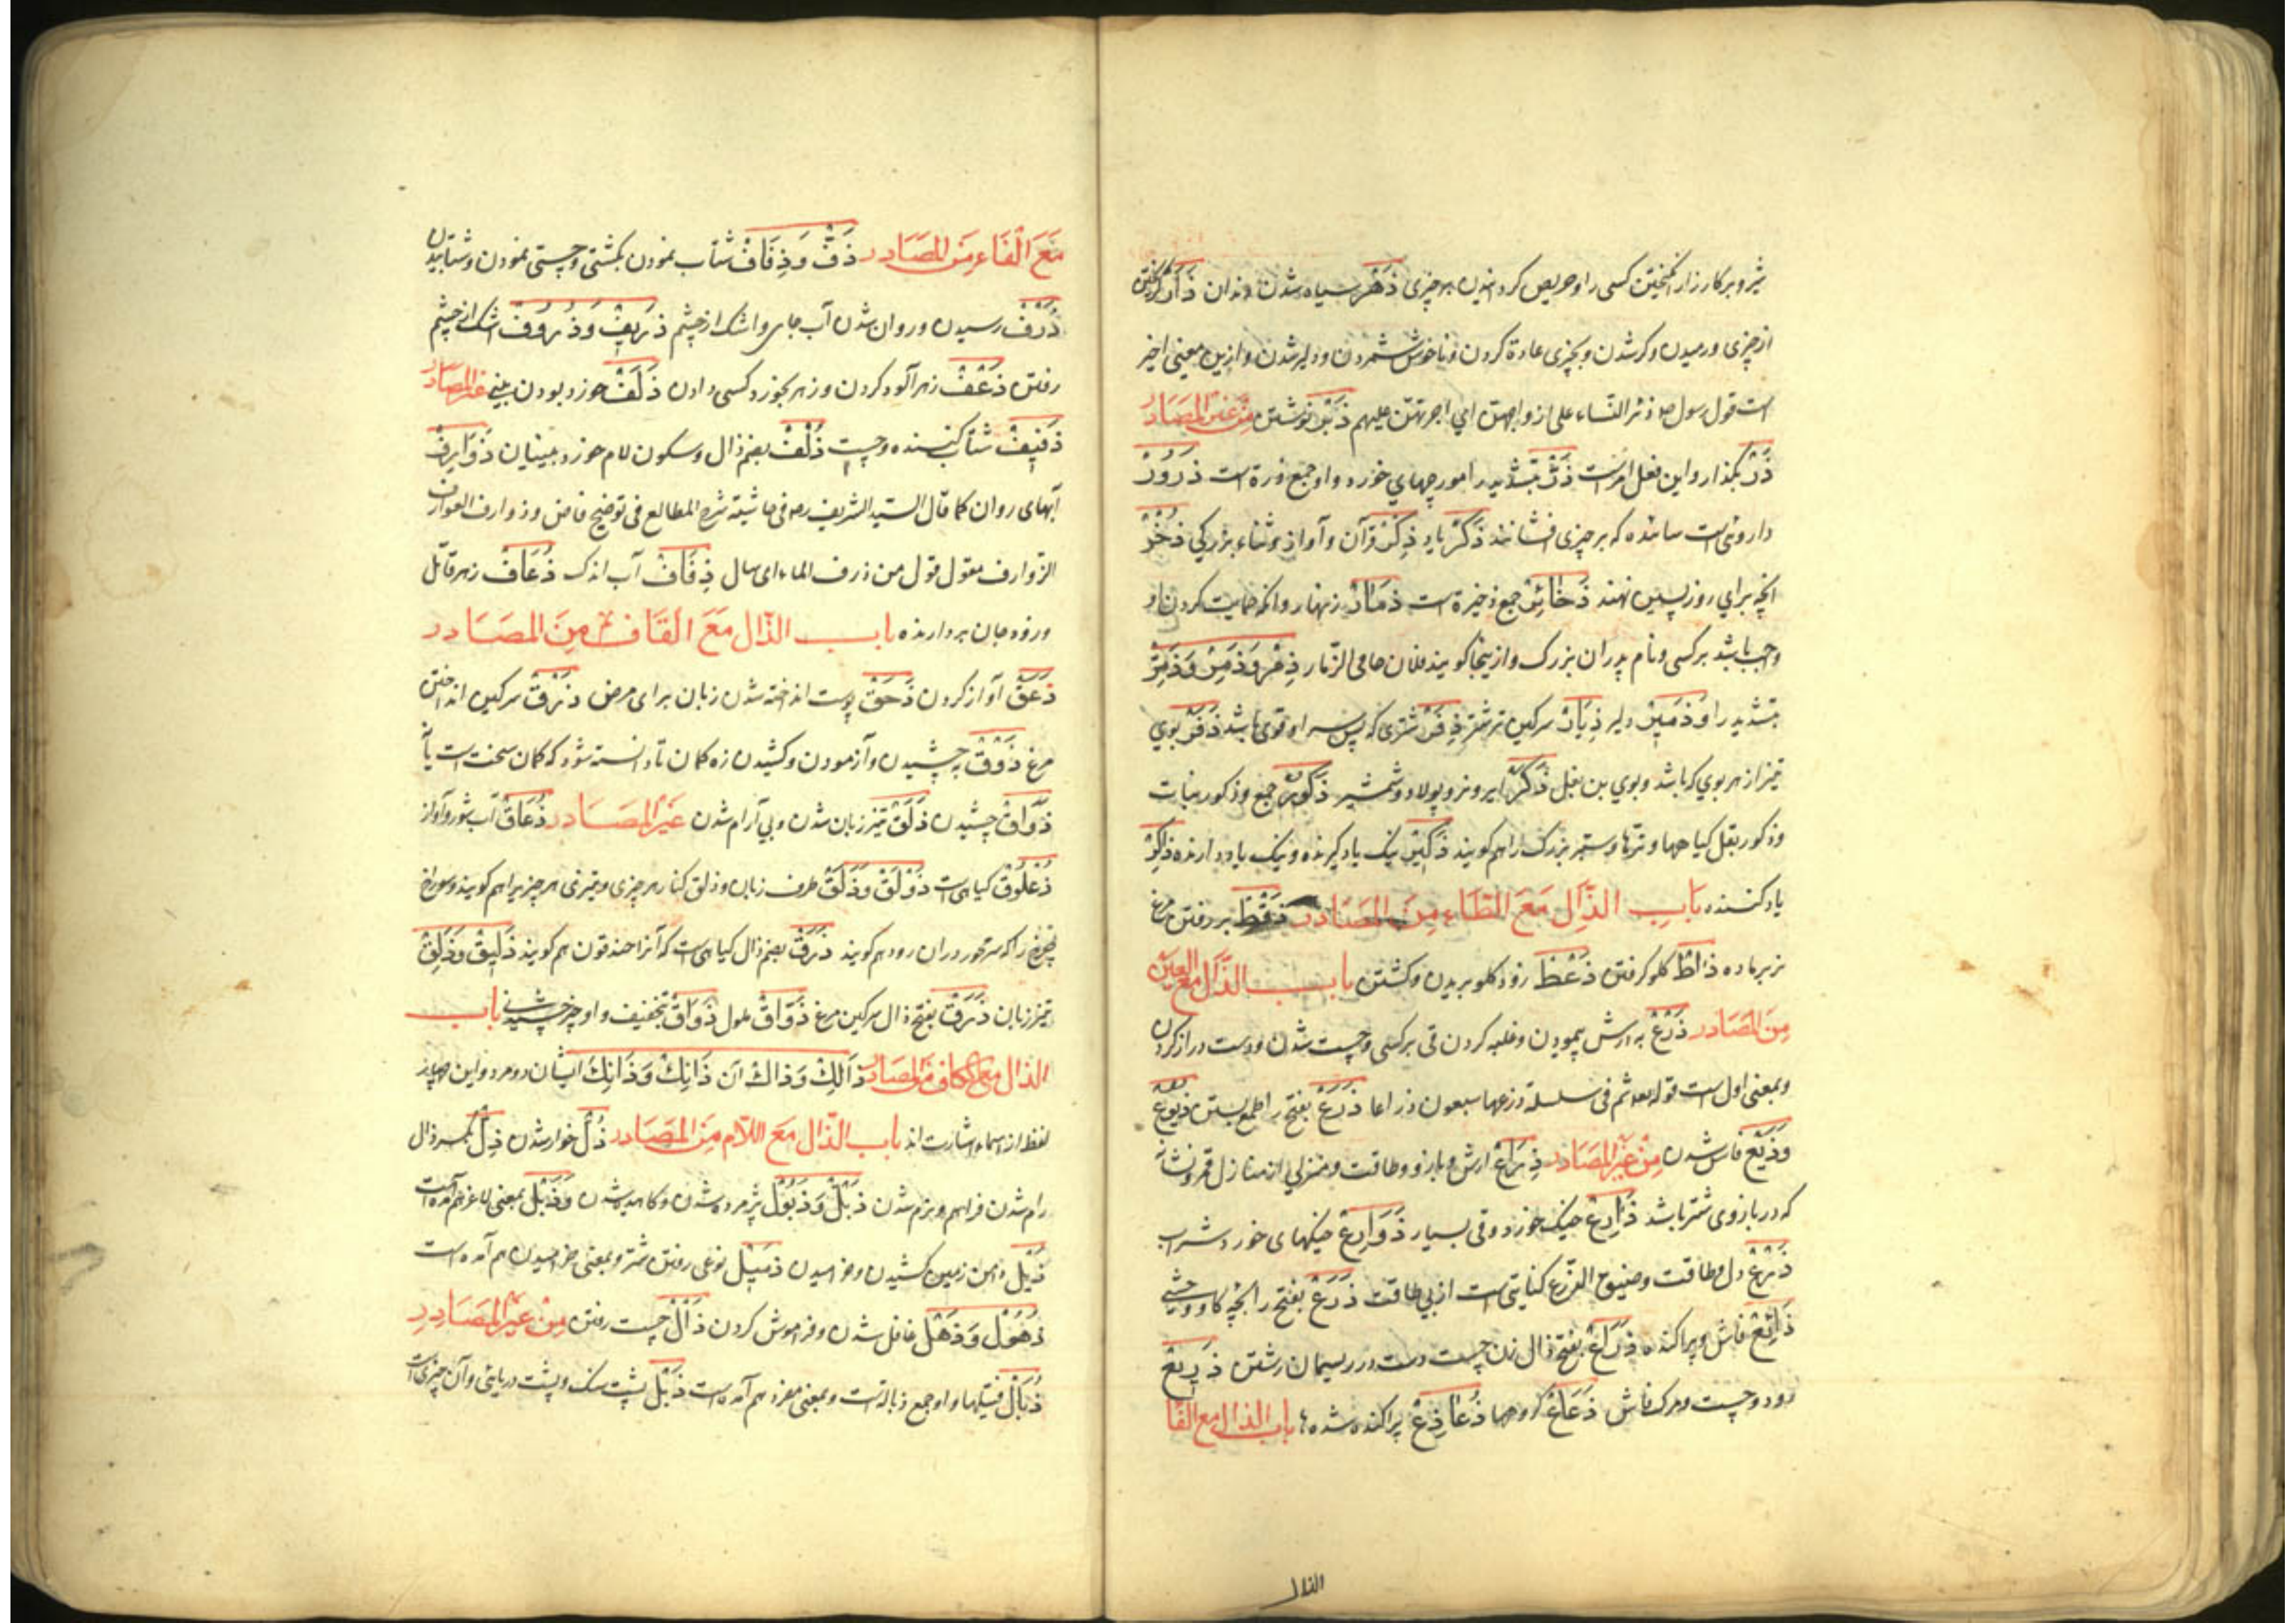 شیر و بر کارزار انگیختن کسی را و حریص کردانیدن بر چیزی ذَهَر سیاه شدن دندان ذَأَر گریختن
از چیزی و رمیدن و کر شدن و بچیزی عادة کردن و ناخوش شمردن و دلیر شدن و ازین معنی اخیر
است قول رسول صم ذئر النساء علی ازواجهن ای اجرتهن علیهم ذَبْر نوشتن مِنْ غَیْرِ المَصَادِر
ذَرْ بگذار و این فعل امرست ذَرّ بتشدید را مورچهای خورد و او جمع ذرة است ذَرُور
داروئیست سائیده که بر چیزی افشانند ذَکْر یاد ذِکْر قرآن و آواز و ثناء بزرکی ذُخْر
آنچه برای روز پسین نهند ذَخَائِر جمع ذخیرة است ذِمَار زنهار و آنکه حمایت کردن او
واجب باشد بر کسی و نام پدران بزرک و ازینجا کویند فلان حامی الذمار ذِمْر وَ ذَمِر وَ ذَمِرّ
بتشدید را و ذَمِیر دلیر ذِیَار سرکین تر شتر ذِفَرّ شتری که پس سر او قوی باشد ذَفَر بوی
تیز از هر بوی که باشد و بوی بن بغل ذَکَر ایر و نر و پولاد و شمشیر ذُکُور جمع و ذکور نبات
و ذکور بقل کیاهها و ترّها و ستبر بزرک را هم کویند ذِکِّیر نیک یاد کیرنده و نیک یاد دارنده ذَاکِر
یاد کننده بَابِ الذَّالِ مَعَ الطَّاءِ مِنَ المَصَادِر ذَقْط بر رفتن مرغ
نر بر ماده ذَاْط کلو کرفتن ذَعْظ زود کلو بریدن و کشتن باب الذَّال مع العین
مِنَ المَصَادِر ذَرْع به ارش پیمودن و غلبه کردن قی بر کسی و چست شدن و دست دراز کردن
و بمعنی اول است قوله تعه ثم فی سلسلة ذرعها سبعون ذراعا ذَرَع بفتح را طمع بستن ذُیُوع
وَ ذَیْع فاش شدن مِنْ غَیْرِ المَصَادِر ذِرَاع ارش و بازو و طاقت و منزلی از منازل قمر و نشان
که در بازوی شتر باشد ذَارِع خیک خورد و قی بسیار ذَوَارِع خیکهای خورد شراب
ذَرْع دل و طاقت و ضیق الذرع کنایتی است از بی طاقت ذَرَع بفتح را بچه کاو وحشی
ذَائِع فاش و پراکنده ذَرَاع بفتح ذال زن چست دست در ریسمان رشتن ذَرِیع
زود و چست و مرک فاش ذَعَاع کروهها ذُعَاذِع پراکنده شده ها باب الذال مع الفا
الذال
مَعَ الْفَاءِ مِنَ المَصَادِر ذَفّ وَ ذِفَاف شتاب نمودن بکشتن و چستی نمودن و شتابیدن
ذَرْف رسیدن و روان شدن آب جای و اشک از چشم ذَرِیف وَ ذُرُوف اشک از چشم
رفتن ذَعْف زهر آلود کردن و زهر بخورد کسی دادن ذَلَف خورد بودن بینی غیر المصادر
ذَفِیف شتاب کننده و چست ذُلْف بضم ذال و سکون لام خورد بینیان ذَوَارِف
آبهای روان کما قال السید الشریف رحه فی حاشیة شرح المطالع فی توضیح فاض و ذوارف العوارف
الذوارف مقول قول من ذرف الماء ای سال ذِفَاف آب اندک ذُعَاف زهر قاتل
و زود جان بردارنده باب الذَّال مَعَ القَافِ مِنَ المَصَادِر
ذَعْق آواز کردن ذَحْق پوست انداخته شدن زبان برای مرض ذَرْق سرکین انداختن
مرغ ذَوْق چشیدن و آزمودن و کشیدن زه کمان تا دانسته شود که کمان سخت است یا نه
ذَوَاق چشیدن ذَلَق تیز زبان شدن و بی آرام شدن غَیْرِ المَصَادِر ذُعَاق آب شور و آواز
ذُعْلُوق کیاهی است ذَوْلَق وَ ذَلْق طرف زبان و ذلق کنار هر چیزی و تیزی هر چیز را هم کویند و سوراخ
چرخ را که محور در آن رود هم کویند ذُرَق بضم ذال کیاهی است که آنرا حندقوق هم کویند ذَلِیق وَ ذَلِق
تیز زبان ذَرْق بفتح ذال سرکین مرغ ذَوَّاق ملول ذَوَاق بتخفیف واو چیز چشیدنی باب
الذال مع الکاف من المصادر ذَالِکَ وَ ذَاکَ آن ذَانِکَ وَ ذَانِّکَ ایشان دو مرد و این چهار
لفظ از اسماء اشارت اند باب الذَّال مَعَ اللَّام مِنَ المَصَادِر ذُلّ خوار شدن ذِلّ بکسر ذال
رام شدن فراهم و نرم شدن ذَبْل وَ ذُبُول پژمرده شدن و کاهیده شدن وَ ذَبْل بمعنی لاغر هم آمده است
ذَیْل دامن زمین کشیدن و خرامیدن ذَمِیل نوعی رفتن شتر و بمعنی خرامیدن هم آمده است
ذُهُول وَ ذَهْل غافل شدن و فراموش کردن ذَأْل چست رفتن مِنْ غَیْرِ المَصَادِر
ذُبَال فتیلها و او جمع ذباله است و بمعنی مفرد هم آمده است ذَبْل پشت سنک و پشت دریائی و آن چیزیست